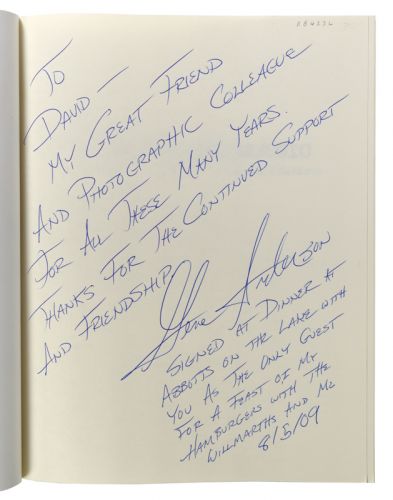 TO
DAVID —
MY GREAT FRIEND
AND PHOTOGRAPHIC COLLEAGUE
FOR ALL THESE MANY YEARS.
THANKS FOR THE CONTINUED SUPPORT
AND FRIENDSHIP
Gene Anderson
SIGNED AT DINNER AT
ABBOTTS ON THE LAKE WITH
YOU AS THE ONLY GUEST
FOR A FEAST OF MY
HAMBURGERS WITH THE
WILLMARTHS AND ME
8/5/09